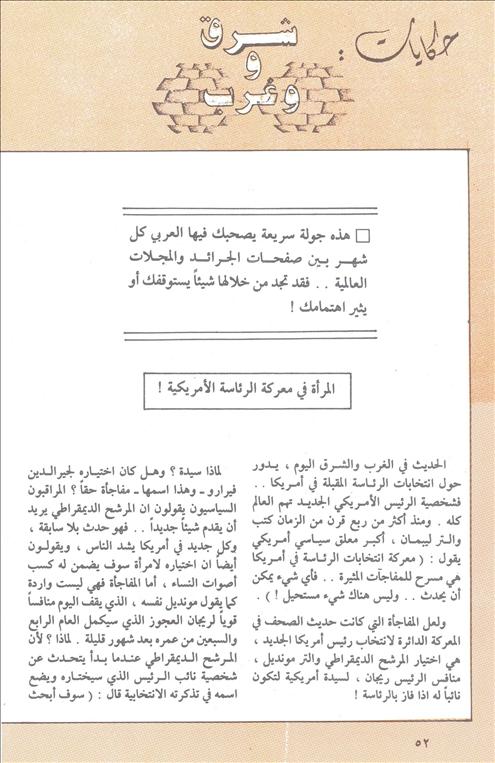 حكايات :
شرق
و
وغرب
□ هذه جولة سريعة يصحبك فيها العربي كل
شهر بين صفحات الجرائد والمجلات
العالمية . . فقد تجد من خلالها شيئاً يستوقفك أو
يثير اهتمامك !
المرأة في معركة الرئاسة الأمريكية !
الحديث في الغرب والشرق اليوم ، يدور
حول انتخابات الرئاسة المقبلة في أمريكا . .
فشخصية الرئيس الأمريكي الجديد تهم العالم
كله . ومنذ أكثر من ربع قرن من الزمان كتب
والتر ليبمان ، أكبر معلق سياسي أمريكي
يقول : ( معركة انتخابات الرئاسة في أمريكا
هي مسرح للمفاجآت المثيرة . . فأي شيء يمكن
أن يحدث . . وليس هناك شيء مستحيل ! ) .
ولعل المفاجأة التي كانت حديث الصحف في
المعركة الدائرة لانتخاب رئيس أمريكا الجديد ،
هي اختيار المرشح الديمقراطي والتر مونديل ،
منافس الرئيس ريجان ، لسيدة أمريكية لتكون
نائباً له اذا فاز بالرئاسة !
لماذا سيدة ؟ وهل كان اختياره لجيرالدين
فيرارو ـ وهذا اسمها ـ مفاجأة حقاً ؟ المراقبون
السياسيون يقولون ان المرشح الديمقراطي يريد
أن يقدم شيئاً جديداً . . فهو حدث بلا سابقة ،
وكل جديد في أمريكا يشد الناس ، ويقولون
أيضاً ان اختياره لامرأة سوف يضمن له كسب
أصوات النساء ، أما المفاجأة فهي ليست واردة
كما يقول مونديل نفسه ، الذي يقف اليوم منافساً
قوياً لريجان العجوز الذي سيكمل العام الرابع
والسبعين من عمره بعد شهور قليلة . لماذا ؟ لأن
المرشح الديمقراطي عندما بدأ يتحدث عن
شخصية نائب الرئيس الذي سيختاره ويضع
اسمه في تذكرته الانتخابية قال : ( سوف أبحث
٥٢